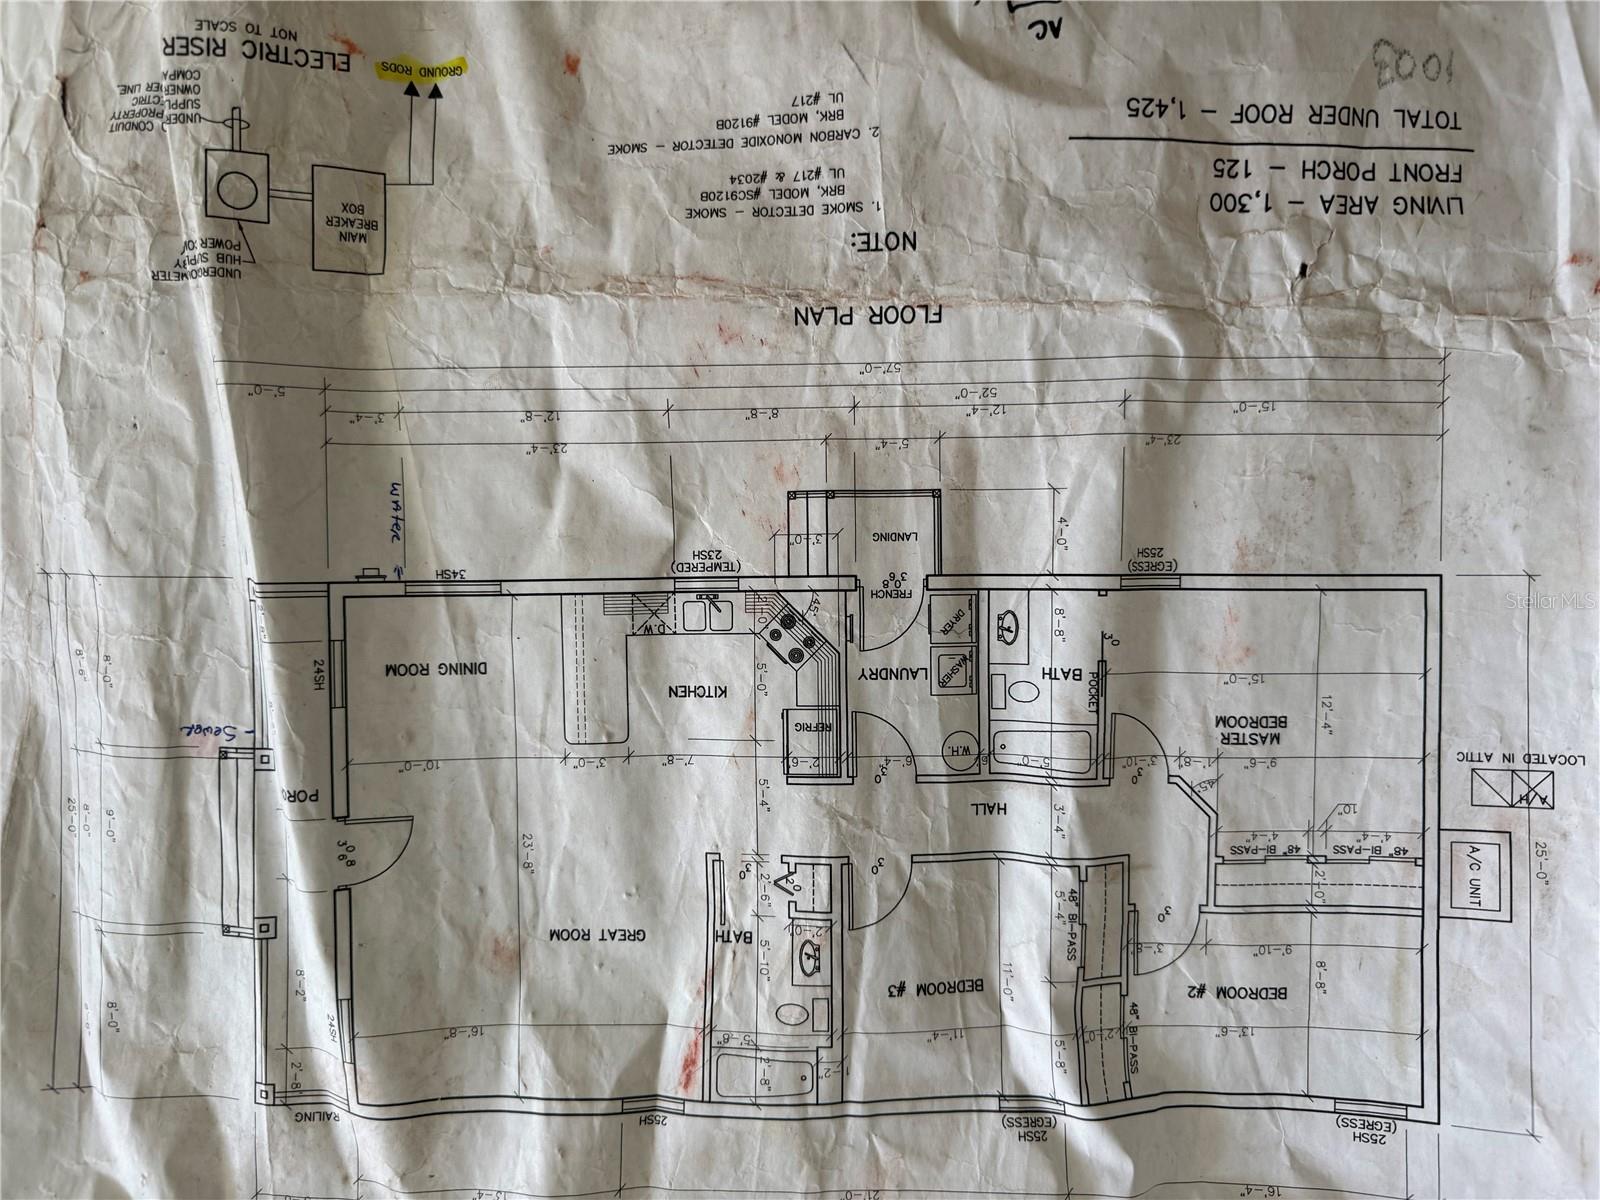 LIVING AREA – 1,300
FRONT PORCH – 125
TOTAL UNDER ROOF – 1,425
1003
AC
NOTE:
1. SMOKE DETECTOR – SMOKE
BRK, MODEL #SC9120B
UL #217 & #2034
2. CARBON MONOXIDE DETECTOR – SMOKE
BRK, MODEL #9120B
UL #217
MAIN
BREAKER
BOX
GROUND RODS
ELECTRIC RISER
NOT TO SCALE
FLOOR PLAN
57'-0"
52'-0"
5'-0"
15'-0"
12'-4"
8'-8"
12'-8"
3'-4"
23'-4"
5'-4"
23'-4"
water
Sewer
4'-0"
LANDING
3'-0"
25SH
(EGRESS)
23SH
(TEMPERED)
34SH
FRENCH
3'6
0'8
DRYER
WASHER
LAUNDRY
W.H.
BATH
8'-8"
POCKET
3'0
MASTER
BEDROOM
15'-0"
12'-4"
9'-6"
1'-8"
3'-10"
5'-0"
6"
6'-4"
2'-6"
7'-8"
3'-0"
10'-0"
REFRIG
KITCHEN
D.W.
45°
5'-0"
DINING ROOM
24SH
HALL
3'-4"
5'-4"
45°
10"
4'-4"
4'-4"
48" BI-PASS
48" BI-PASS
2'-0"
LOCATED IN ATTIC
A/H
A/C UNIT
25'-0"
BEDROOM #2
9'-10"
3'-8"
8'-8"
13'-6"
48" BI-PASS
48" BI-PASS
5'-4"
5'-8"
2'-0"
BEDROOM #3
11'-0"
11'-4"
BATH
2'-6"
2'-0"
5'-10"
5'-8"
2'-8"
GREAT ROOM
23'-8"
16'-8"
24SH
3'0
6'8
8'-2"
2'-8"
RAILING
25SH
25SH
(EGRESS)
25SH
(EGRESS)
8'-6"
8'-0"
9'-0"
8'-0"
25'-0"
8'-0"
16'-4"
21'-0"
13'-4"
Stellar MLS